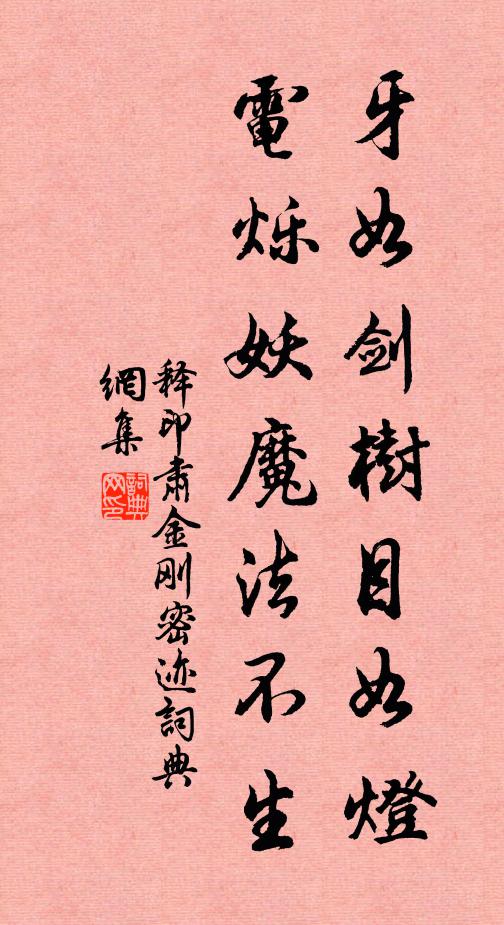 牙如剑樹目如燈
電烁妖魔法不生
释印肃金刚密迹詞典
網集
詞典
网印